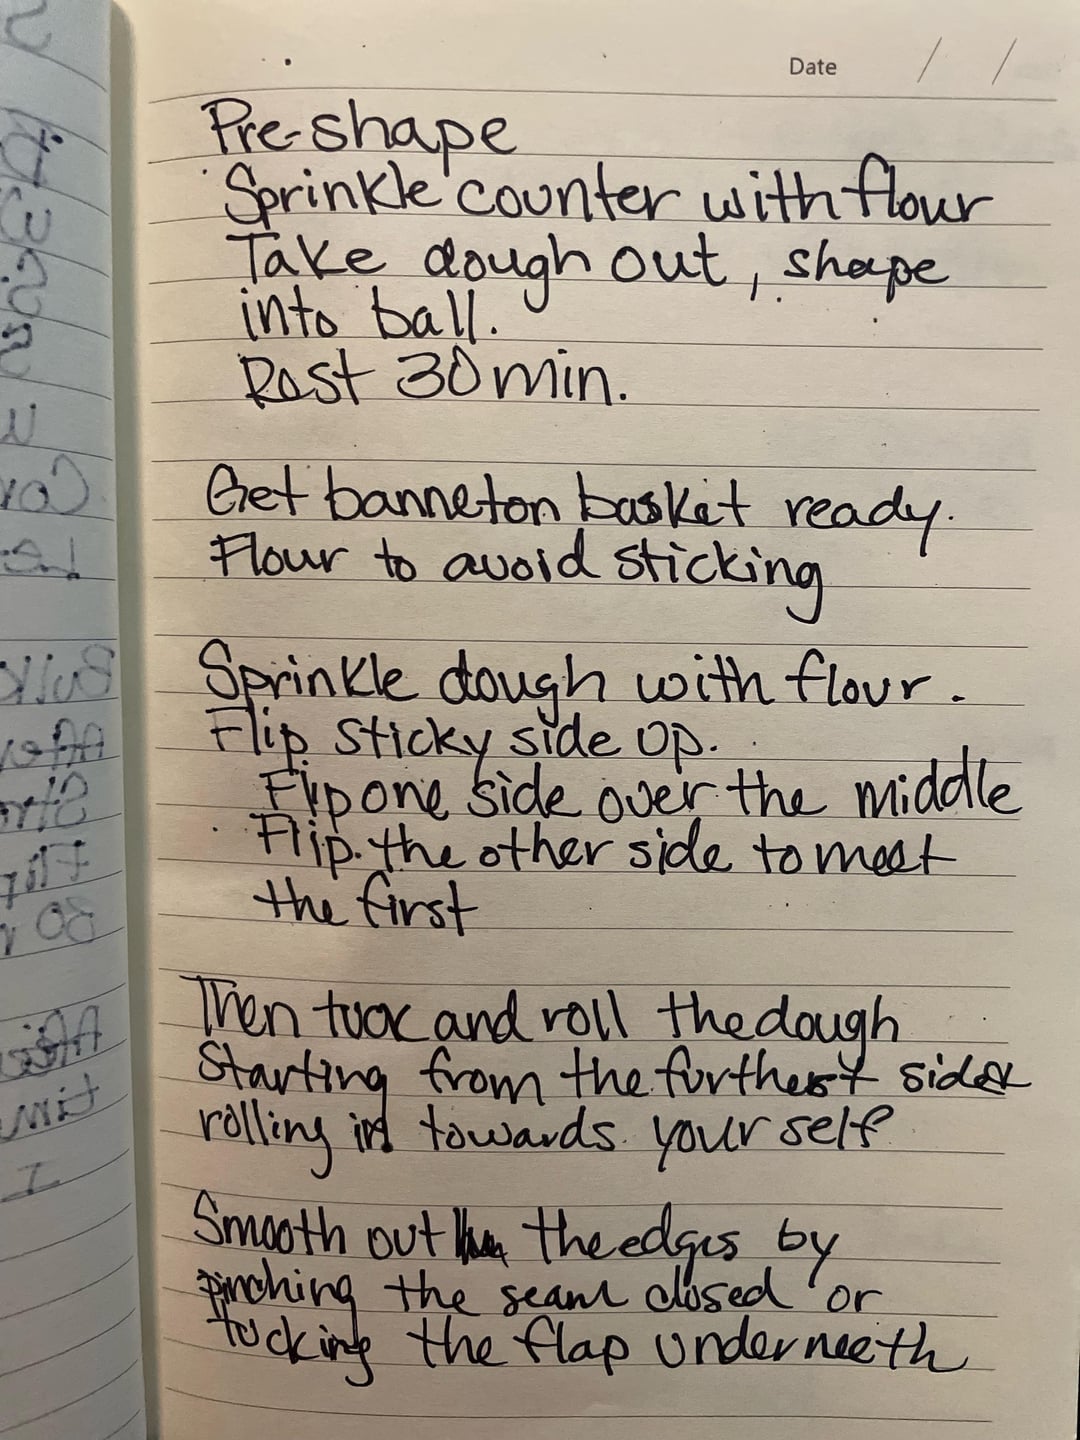 Date / /
Pre-shape
Sprinkle counter with flour
Take dough out, shape
into ball.
Rest 30 min.
Get banneton basket ready.
Flour to avoid sticking
Sprinkle dough with flour.
Flip sticky side up.
Flip one side over the middle
Flip the other side to meet
the first
Then tuck and roll the dough
Starting from the furthest side
rolling in towards yourself
Smooth out the edges by
pinching the seam closed or
tucking the flap underneeth